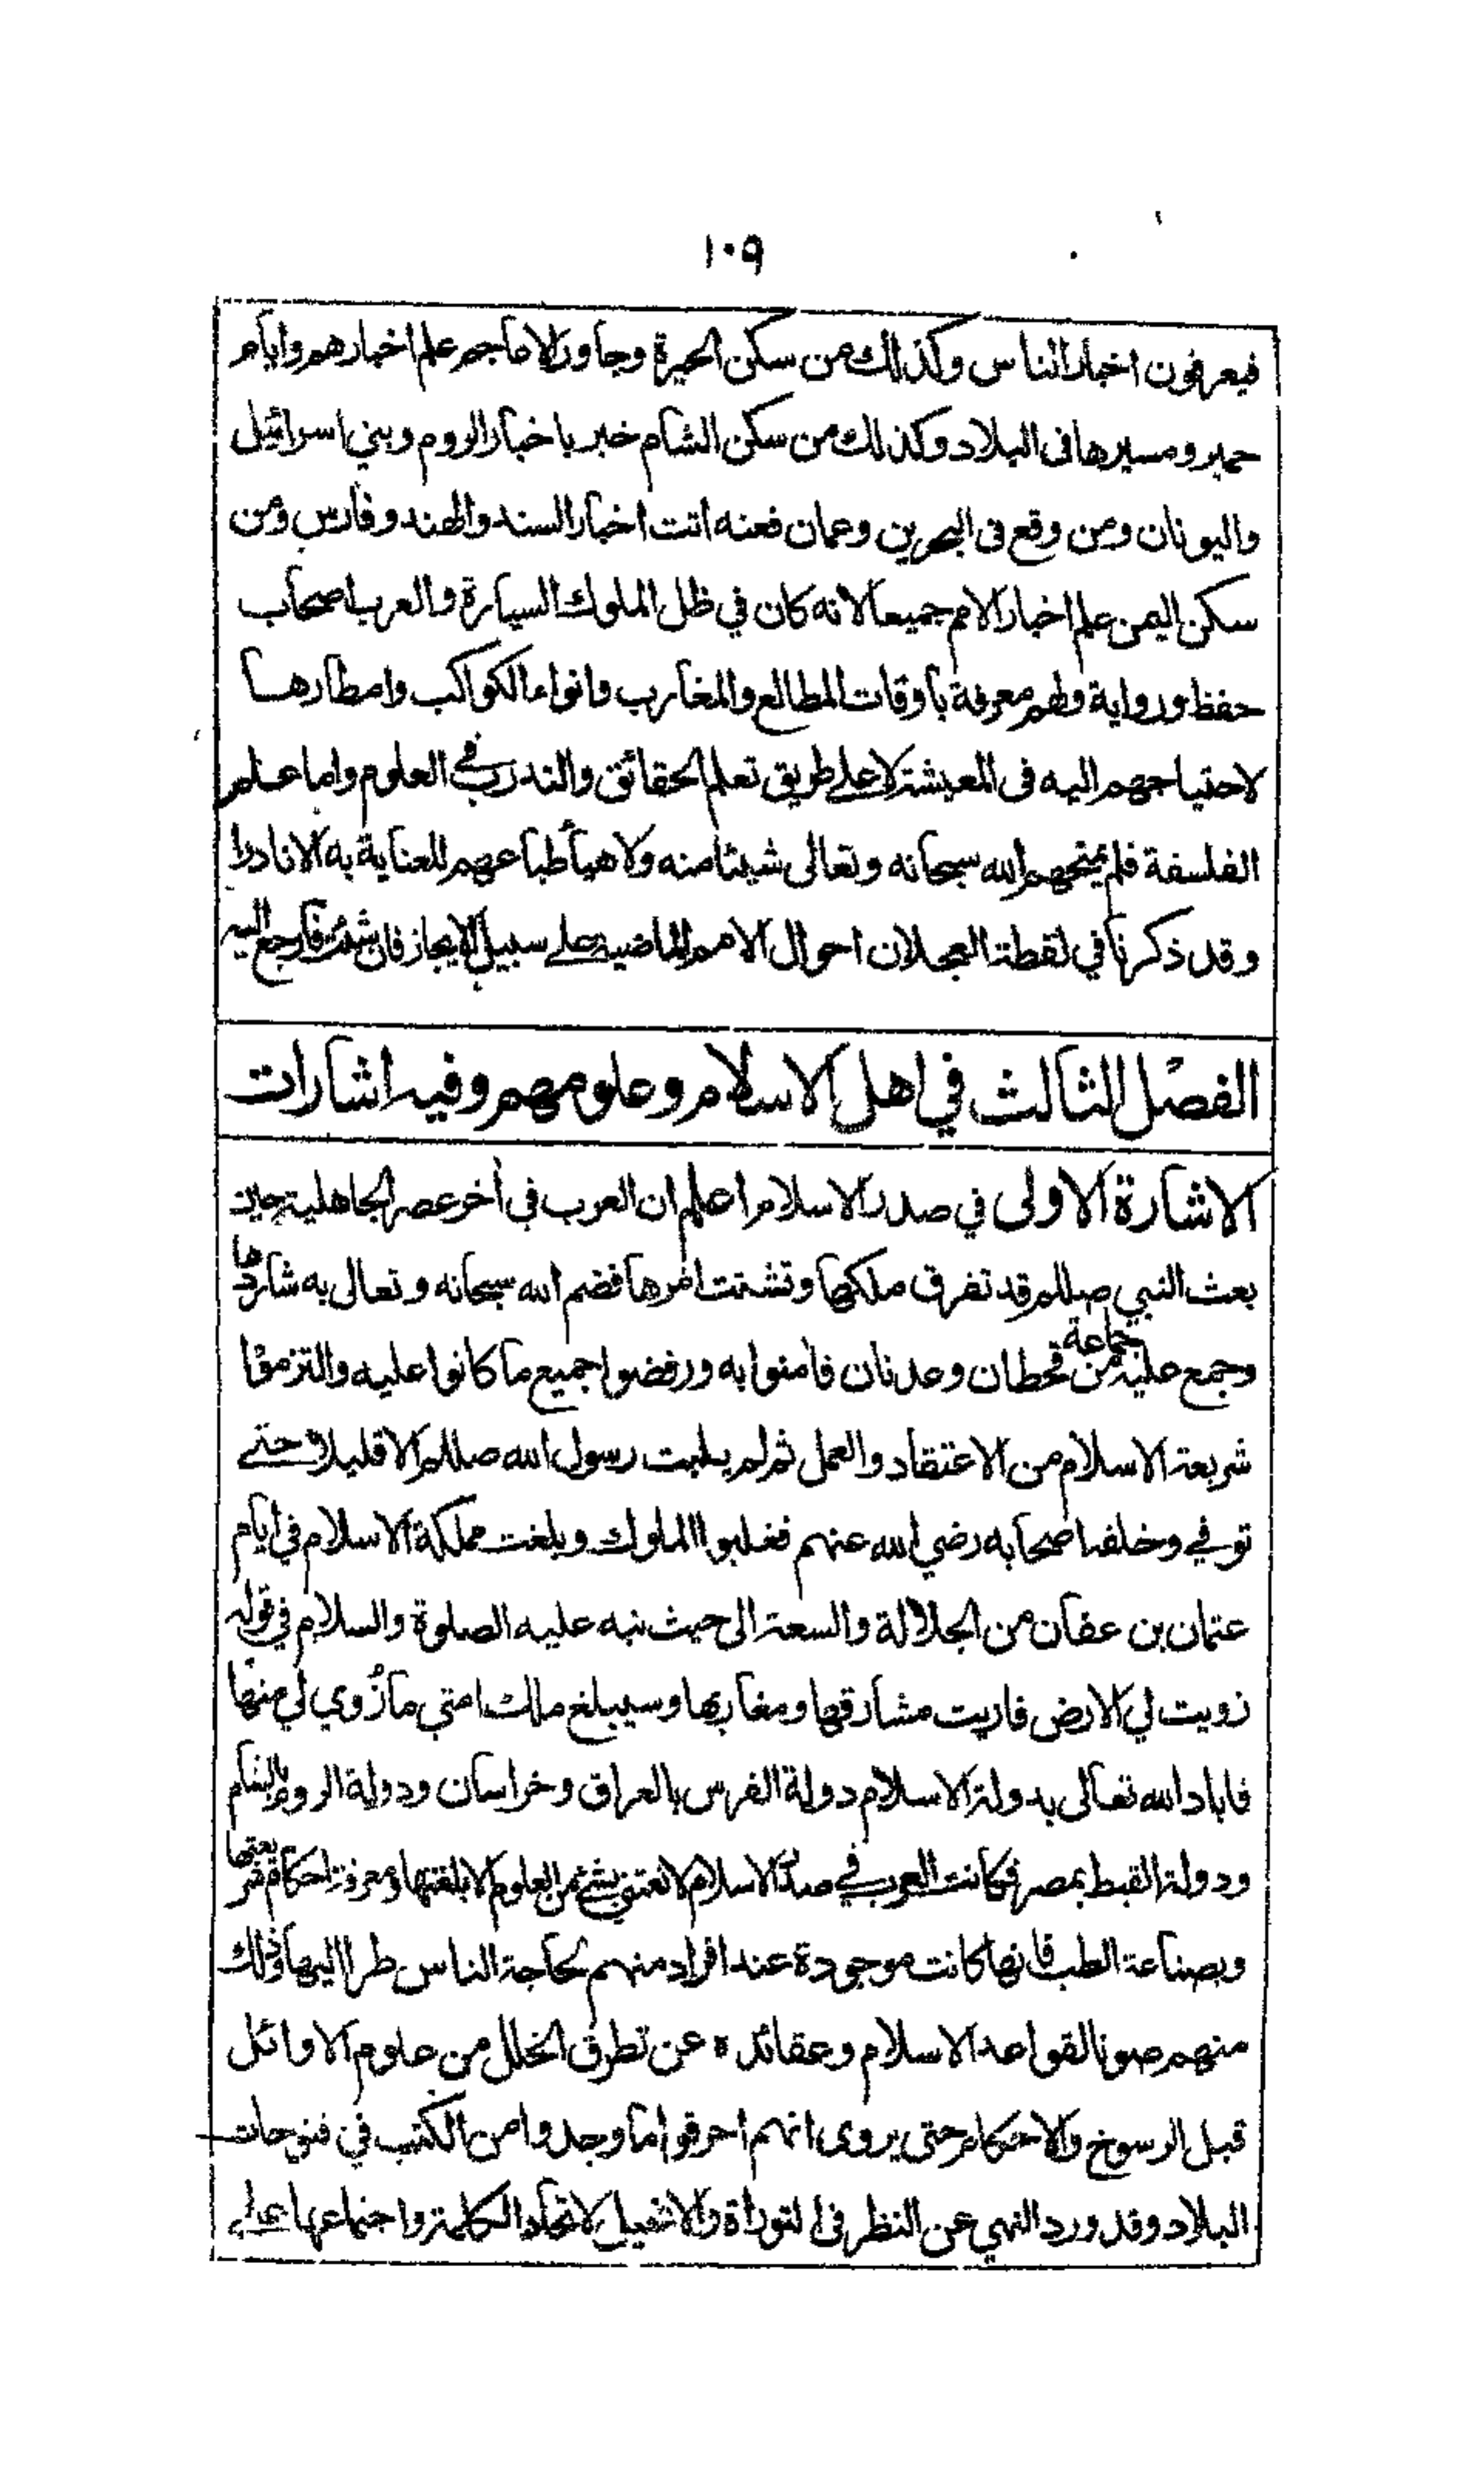 ١٠٩
فيعرفون اخبار الناس وكذلك من سكن الحيرة وجاور الاعاجم علم اخبارهم وايام
حمير ومسيرها فى البلاد وكذلك من سكن الشام خبر باخبار الروم وبني اسرائيل
واليونان ومن وقع فى البحرين وعمان فعنه اتت اخبار السند والهند وفارس ومن
سكن اليمن علم اخبار الامم جميعا لانه كان في ظل الملوك السيارة والعرب اصحاب
حفظ ورواية ولهم معرفة باوقات المطالع والمغارب وانواء الكواكب وامطارها
لاحتياجهم اليه فى المعيشة لا على طريق تعلم الحقائق والتدرب في العلوم واما علم
الفلسفة فلم يمنحهم الله سبحانه وتعالى شيئا منه ولا هيأ طباعهم للعناية به الا نادرا
وقد ذكرنا في لقطة العجلان احوال الامم الماضية على سبيل الايجاز فان شئت فارجع اليه
الفصل الثالث في اهل الاسلام وعلومهم وفيه اشارات
الاشارة الاولى في صدر الاسلام اعلم ان العرب في آخر عصر الجاهلية حين
بعث النبي صللم قد تفرق ملكها وتشتت امرها فضم الله سبحانه وتعالى به شاردها
وجمع عليه جماعة من قحطان وعدنان فآمنوا به ورفضوا جميع ما كانوا عليه والتزموا
شريعة الاسلام من الاعتقاد والعمل ثم لم يلبث رسول الله صللم الا قليلا حتى
توفي وخلفه اصحابه رضي الله عنهم فغلبوا الملوك وبلغت مملكة الاسلام في ايام
عثمان بن عفان من الجلالة والسعة الى حيث نبه عليه الصلوة والسلام في قوله
زويت لي الارض فاريت مشارقها ومغاربها وسيبلغ ملك امتي ما زُوي لي منها
فاباد الله تعالى بدولة الاسلام دولة الفرس بالعراق وخراسان ودولة الروم بالشام
ودولة القبط بمصر فكانت العرب في صدر الاسلام لا تعتني بشئ من العلوم الا بلغتها ومعرفة احكام شريعتها
وبصناعة الطب فانها كانت موجودة عند افراد منهم لحاجة الناس طرا اليها وذلك
منهم صونا لقواعد الاسلام وعقائده عن تطرق الخلل من علوم الاوائل
قبل الرسوخ والاحكام حتى يروى انهم احرقوا ما وجدوا من الكتب في فتوحات
البلاد وقد ورد النهي عن النظر فى التوراة والانجيل لاتحاد الكلمة واجتماعها على